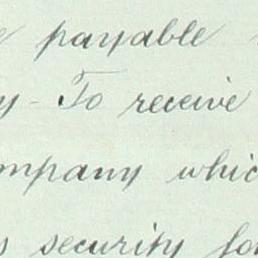 payable
To receive
ompany whic
security for